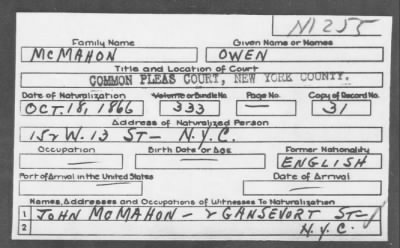 N1255
Family Name Given Name or Names
McMAHON OWEN
Title and Location of Court
COMMON PLEAS COURT, NEW YORK COUNTY.
Date of Naturalization Volume or Bundle No. Page No. Copy of Record No.
OCT. 18, 1866 333 — 31
Address of Naturalized Person
152 W. 13 ST — N.Y.C.
Occupation Birth Date or Age Former Nationality
— — ENGLISH
Port of Arrival in the United States Date of Arrival
— —
Names, Addresses and Occupations of Witnesses To Naturalization
1 JOHN McMAHON — 2 GANSEVORT ST —
2 N.Y.C.